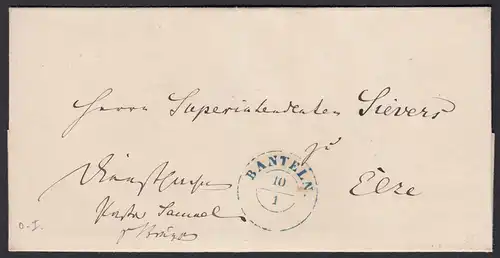 Herrn Superintendenten Sievers
zu
BANTELN.
10
1
Elze
Dienstsache
Pastor